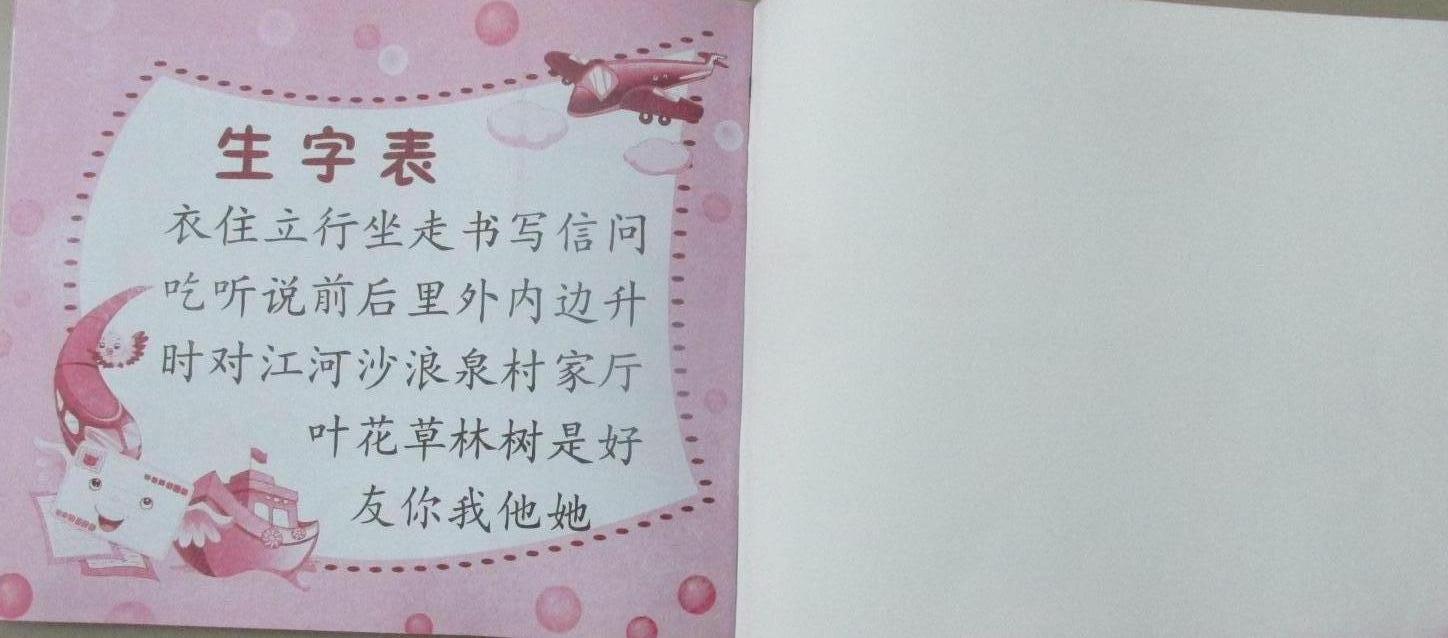 生字表
衣住立行坐走书写信问
吃听说前后里外内边升
时对江河沙浪泉村家厅
叶花草林树是好
友你我他她